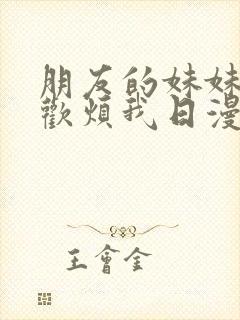 朋友的妹妹
歡煩我日漫
王會金